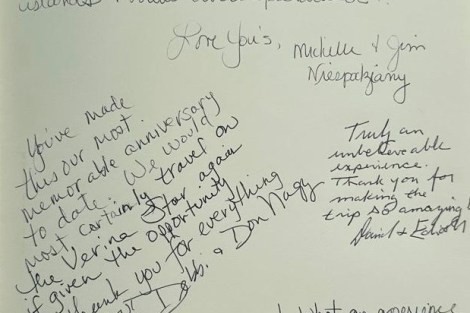 islands
Love You's,
Michelle & Jim
You've made
this our most
memorable anniversary
to date. We would
most certainly travel on
the Verina Star again
if given the opportunity
Thank you for everything
Debbi & Don Nagy
Truly an
unbelievable
experience.
Thank you for
making the
trip so amazing!
David &
What an experience